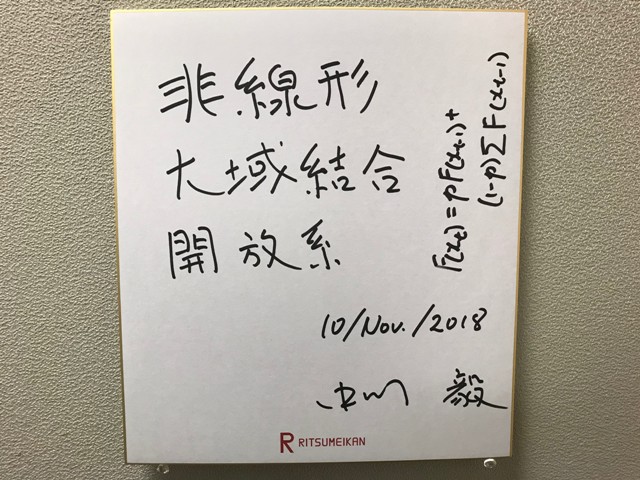 非線形
大域結合
開放系
F(xt) = pF(xt-1)+
(1-p)ΣF(xt-1)
10/Nov./2018
中川 毅
R RITSUMEIKAN